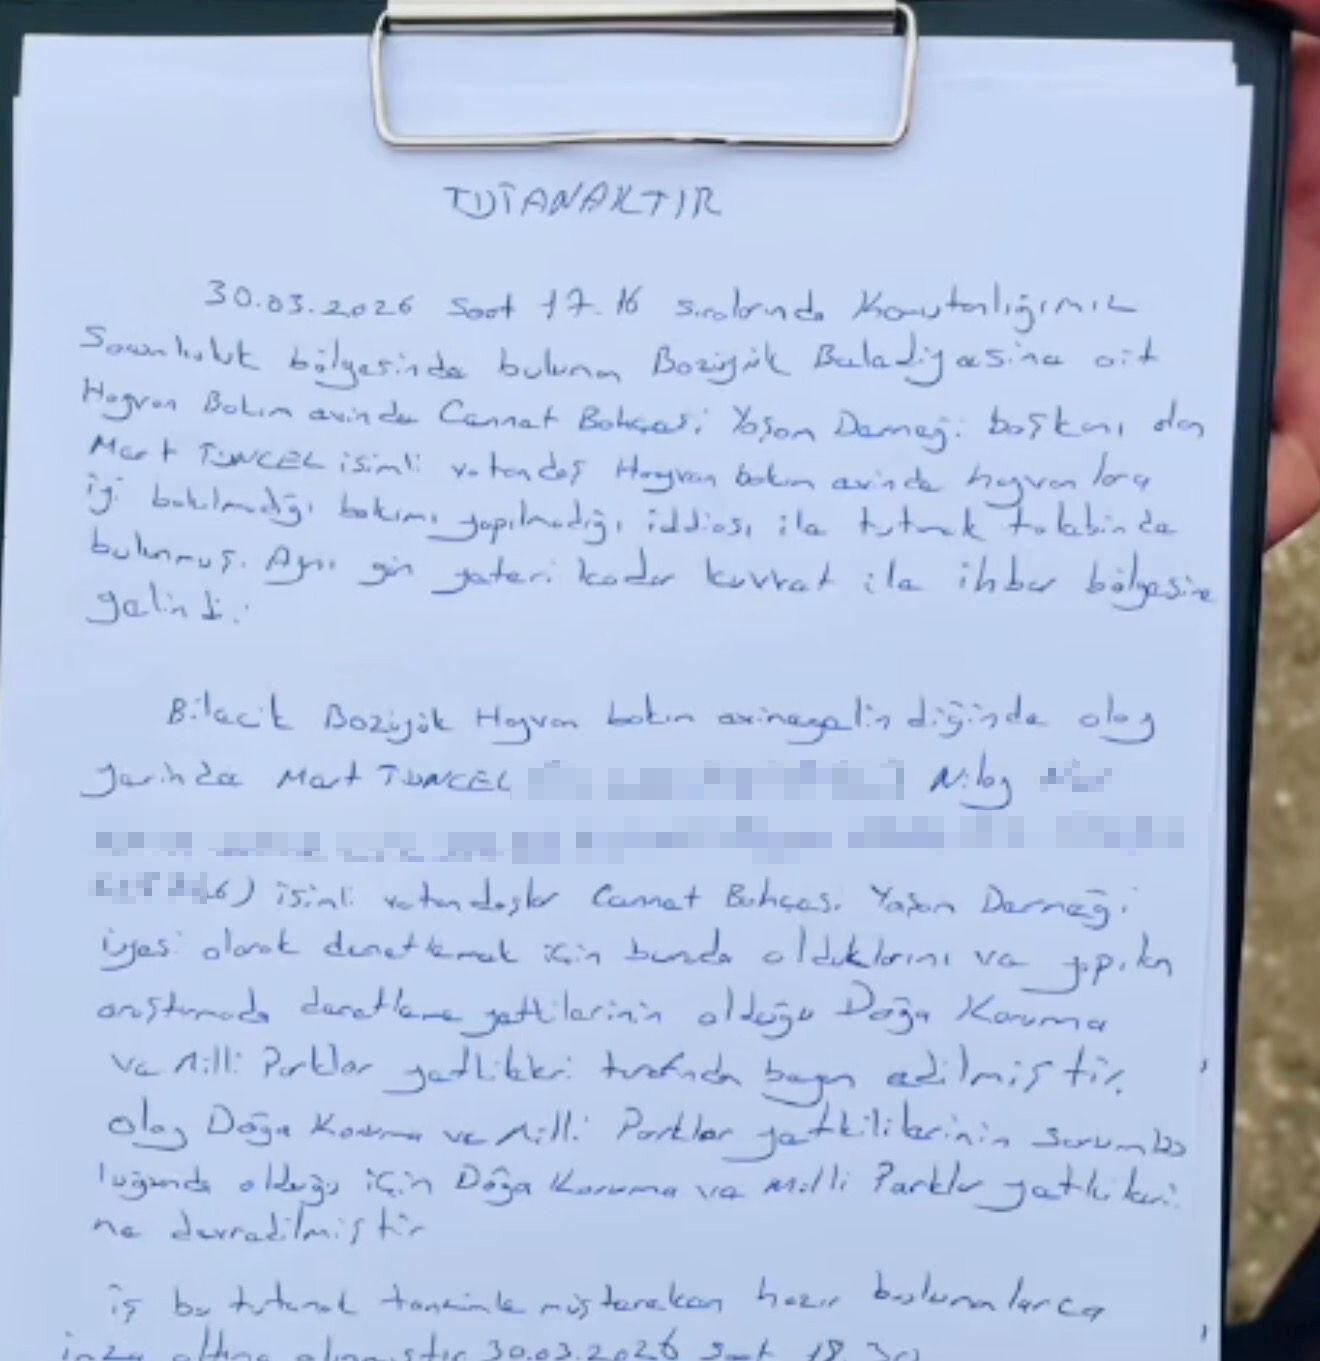 TUTANAKTIR
30.03.2026 Saat 17.16 sıralarında Karakolumuz
bölgesinde bulunan Bozüyük Belediyesine ait
Hayvan Bakım evinde Cennet Bahçesi Yaşam Derneği başkanı olan
Mert TUNCEL isimli vatandaş Hayvan bakım evinde hayvanlara
iyi bakılmadığı bakımı yapılmadığı iddiası ile tutanak talebinde
bulunmuş. Aynı gün yeteri kadar kuvvet ile ihbar bölgesine
gelindi.
Bilecik Bozüyük Hayvan bakım evine gelindiğinde olay
yerinde Mert TUNCEL Nilay
isimli vatandaşlar Cennet Bahçesi Yaşam Derneği
üyesi olarak denetlemek için burada olduklarını ve yapılan
araştırmada denetleme yetkilerinin olduğu Doğa Koruma
ve Milli Parklar yetkilileri tarafından beyan edilmiştir.
olay Doğa Koruma ve Milli Parklar yetkililerinin sorumlu
luğunda olduğu için Doğa Koruma ve Milli Parklar yetkilileri
ne devredilmiştir
iş bu tutanak tanzimle müştereken hazır bulunanlarca
imza altına alınmıştır 30.03.2026 Saat 18.30